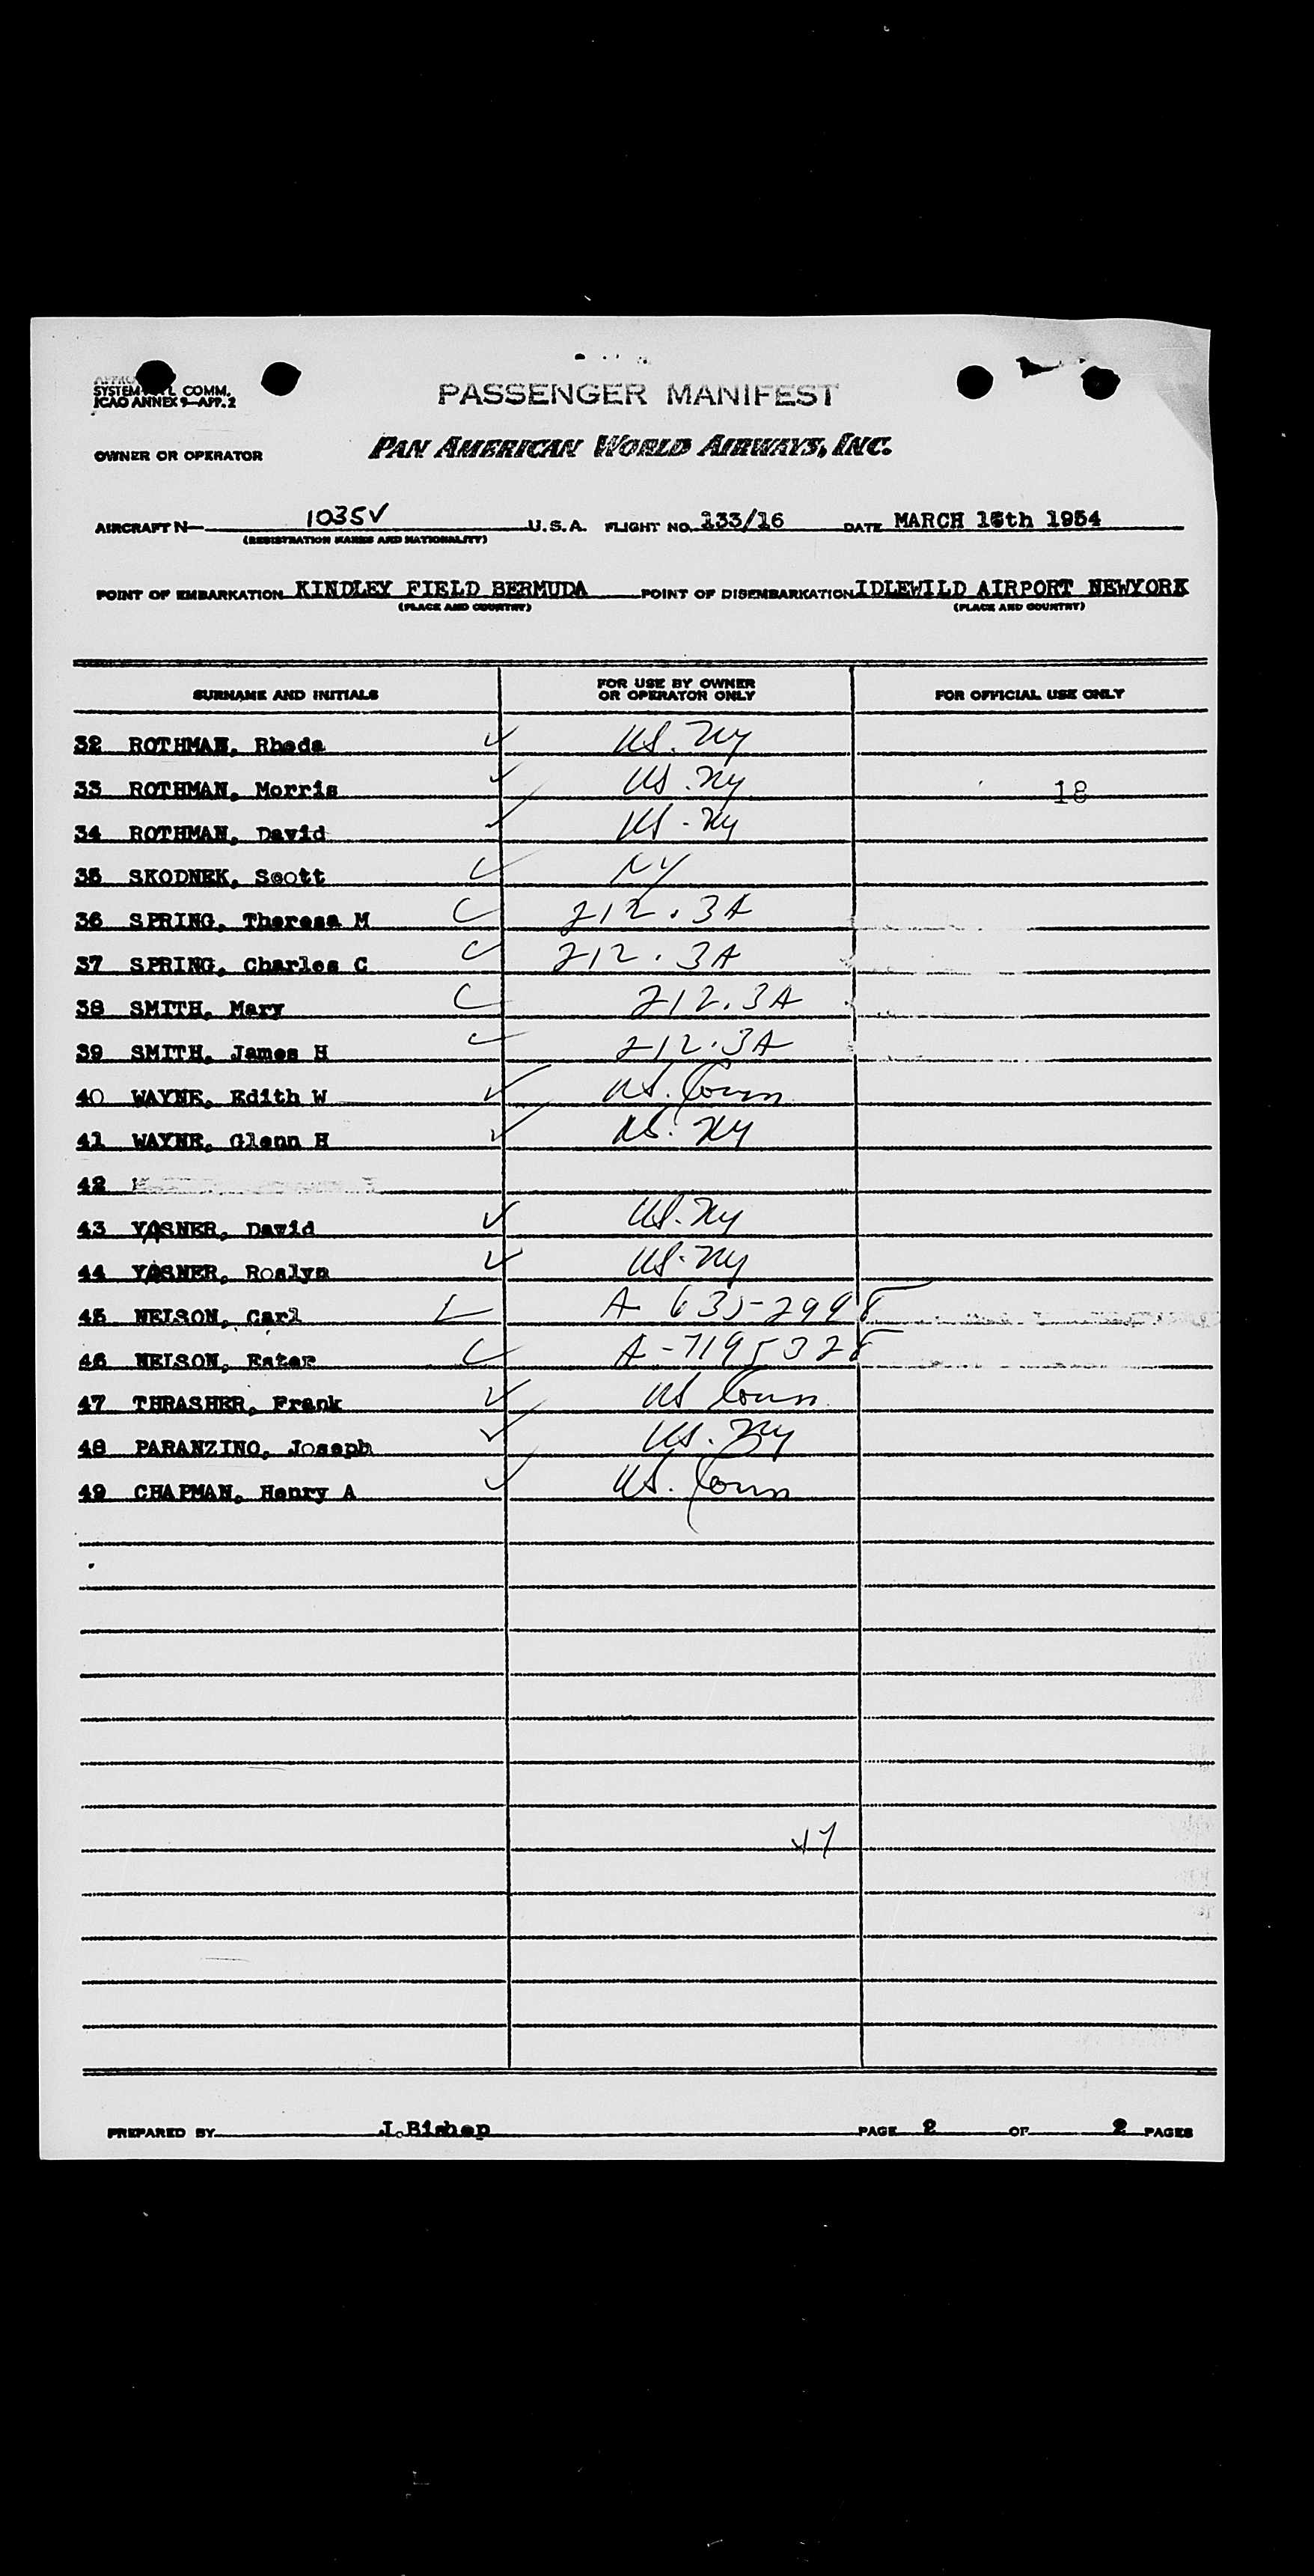 SYSTEM COMM.
ICAO ANNEX 9—APP. 2
PASSENGER MANIFEST
OWNER OR OPERATOR PAN AMERICAN WORLD AIRWAYS, INC.
AIRCRAFT N— 1035V U.S.A. FLIGHT NO. 133/16 DATE MARCH 16th 1954
(REGISTRATION MARKS AND NATIONALITY)
POINT OF EMBARKATION KINDLEY FIELD BERMUDA POINT OF DISEMBARKATION IDLEWILD AIRPORT NEWYORK
(PLACE AND COUNTRY) (PLACE AND COUNTRY)
SURNAME AND INITIALS FOR USE BY OWNER OR OPERATOR ONLY FOR OFFICIAL USE ONLY
32 ROTHMAN, Rhoda ✓ US. NY
33 ROTHMAN, Morris ✓ US. NY 18
34 ROTHMAN, David ✓ US - NY
35 SKODNEK, Scott NY
36 SPRING, Theresa M 212.3A
37 SPRING, Charles C 212.3A
38 SMITH, Mary 212.3A
39 SMITH, James H 212.3A
40 WAYNE, Edith W ✓ US. Conn
41 WAYNE, Glenn H ✓ US. NY
42
43 YASNER, David ✓ US. NY
44 YASNER, Roslyn ✓ US. NY
45 NELSON, Carl A- 635-2998
46 NELSON, Ester A-7195328
47 THRASHER, Frank ✓ US Conn
48 PARANZINO, Joseph ✓ US. NY
49 CHAPMAN, Henry A ✓ US. Conn
47
PREPARED BY J.Bishop PAGE 2 OF 2 PAGES